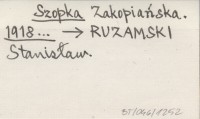 Szopka Zakopiańska.
1918... → RUZAMSKI
Stanisław.